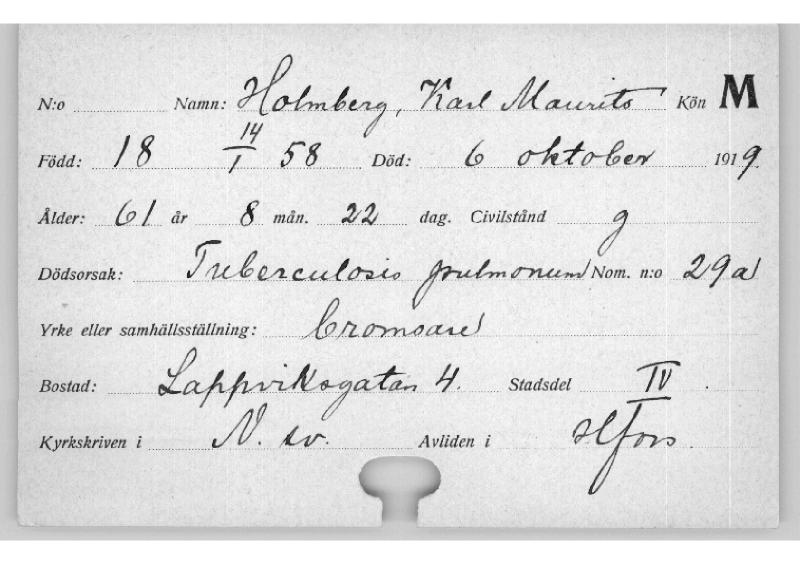 N:o Namn: Holmberg, Karl Maurits Kön M
Född: 18 14/I 58 Död: 6 oktober 1919.
Ålder: 61 år 8 mån. 22 dag. Civilstånd g
Dödsorsak: Tuberculosis pulmonum Nom. n:o 29a
Yrke eller samhällsställning:
Bostad: Lappviksgatan 4. Stadsdel IV
Kyrkskriven i N. sv. Avliden i Hfors